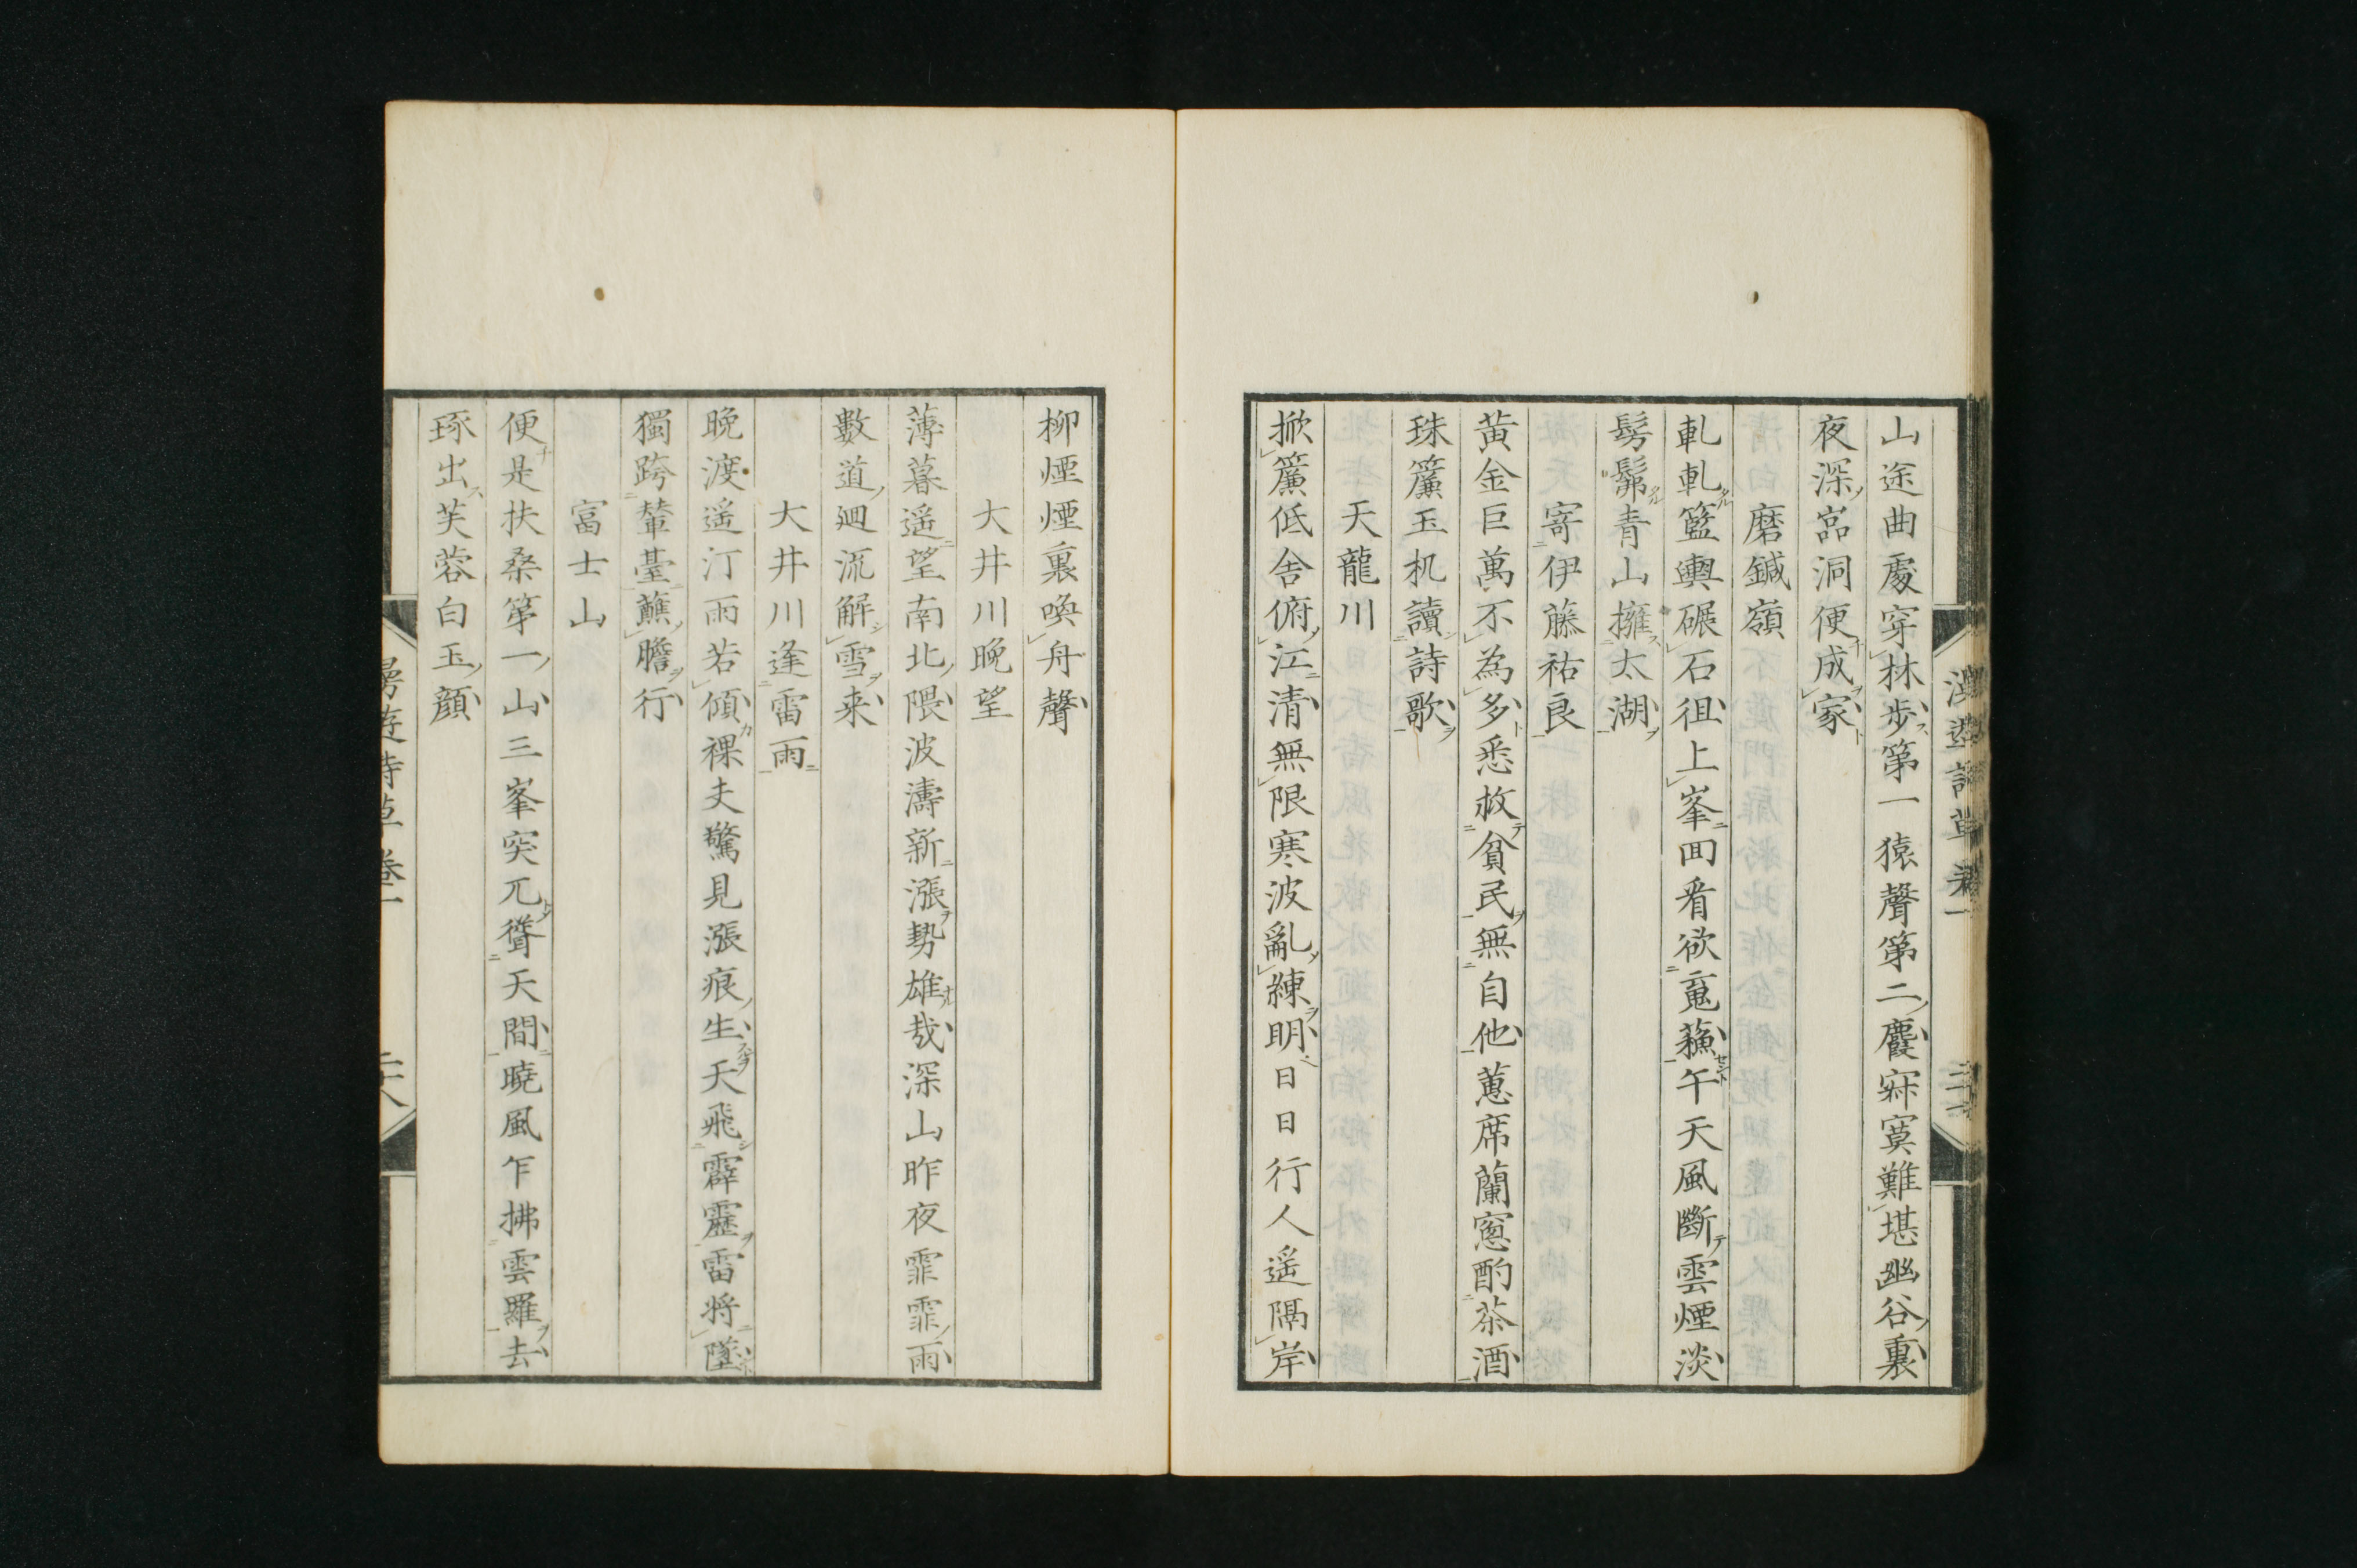 山途曲處穿林歩第一猿聲第二麌寂寞難堪幽谷裏
夜深嵓洞便成家
磨鍼嶺
軋軋籃輿碾石徂上峯回看欲竟蘓午天風斷雲煙淡
髣髴青山擁太湖
寄伊藤祐良
黄金巨萬不為多悉救貧民無自他蕙席蘭窓酌茶酒
珠簾玉机讀詩歌
天龍川
掀簾低舎俯江清無限寒波亂練明日日行人遥隔岸
柳煙煙裏喚舟聲
大井川晩望
薄暮遥望南北隈波濤新漲勢雄哉深山昨夜霏霏雨
數道廻流解雪来
大井川逢雷雨
晩渡遥汀雨若傾裸夫驚見漲痕生天飛霹靂雷将墜
獨跨輦臺蘸膽行
富士山
便是扶桑第一山三峯突兀聳天間曉風乍拂雲羅去
琢出芙蓉白玉顔
漫遊詩草 卷一
二十八